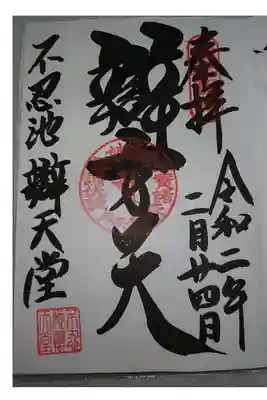 奉拝
令和二年
二月廿四日
辯才天
不忍池辯天堂